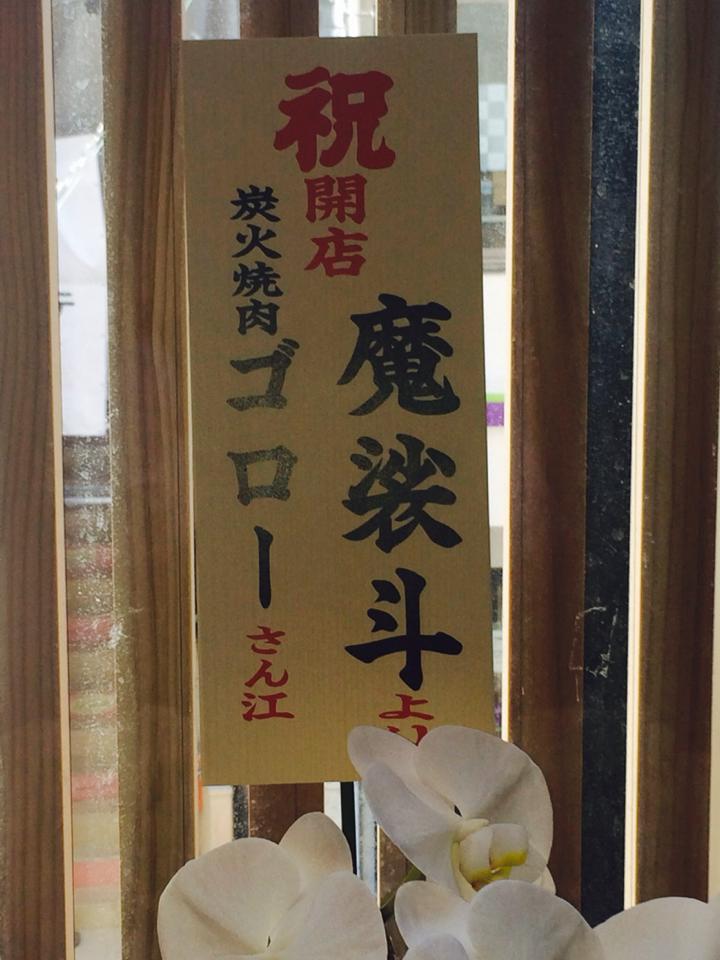 祝
開店
魔裟斗
より
炭火焼肉
ゴロー
さん江